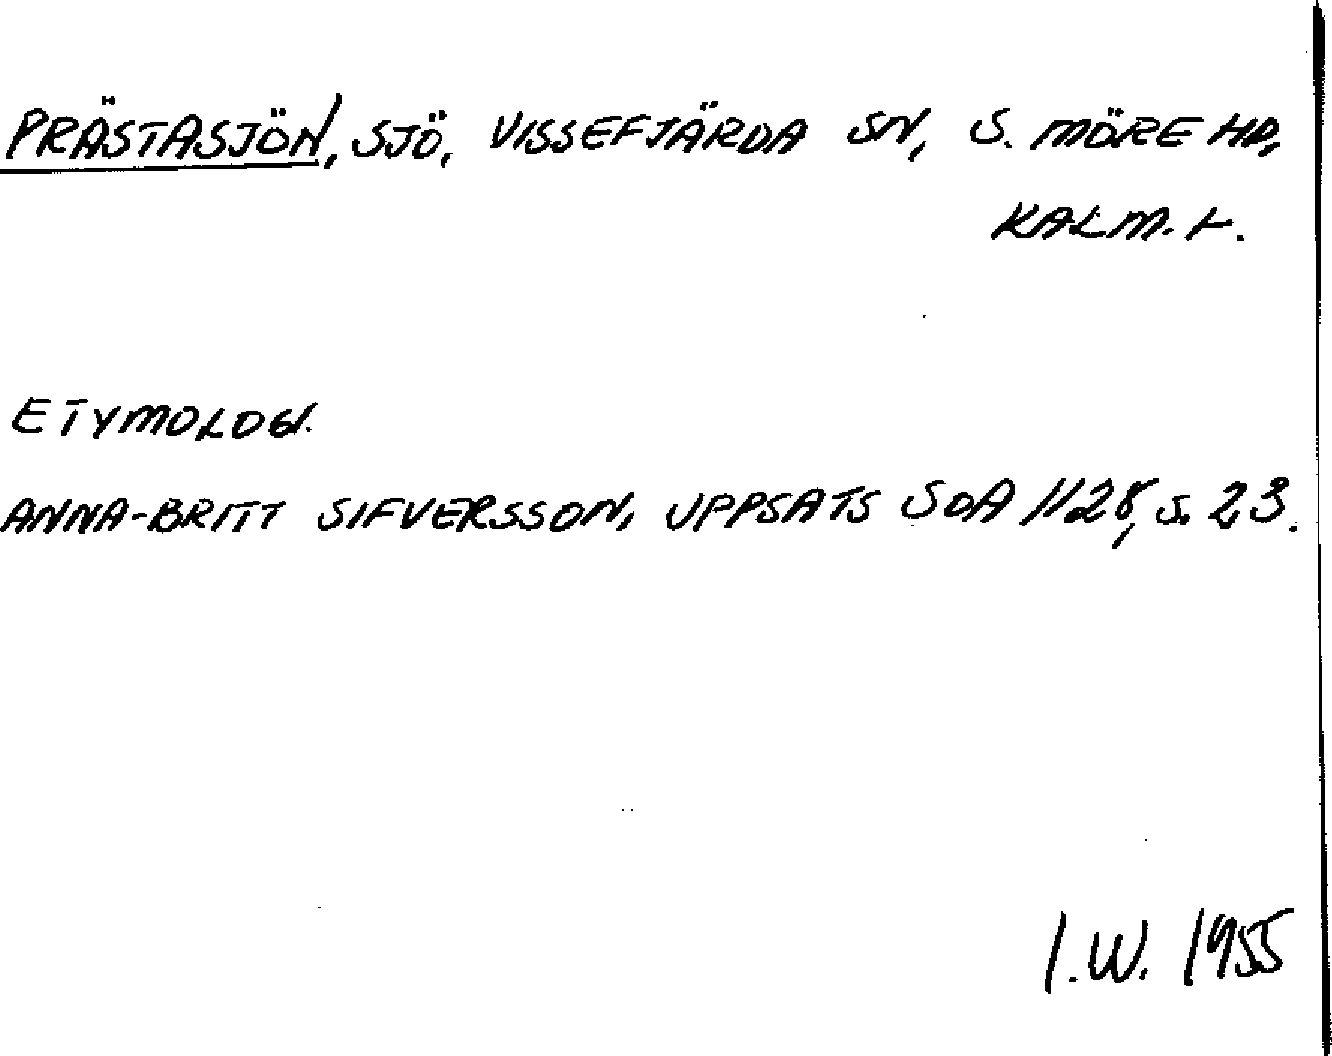 PRÄSTASJÖN, SJÖ, VISSEFJÄRDA SN, S. MÖRE HD,
KALM. L.
ETYMOLOGI.
ANNA-BRITT SIFVERSSON, UPPSATS SOA 1128, S. 23.
I.W. 1955